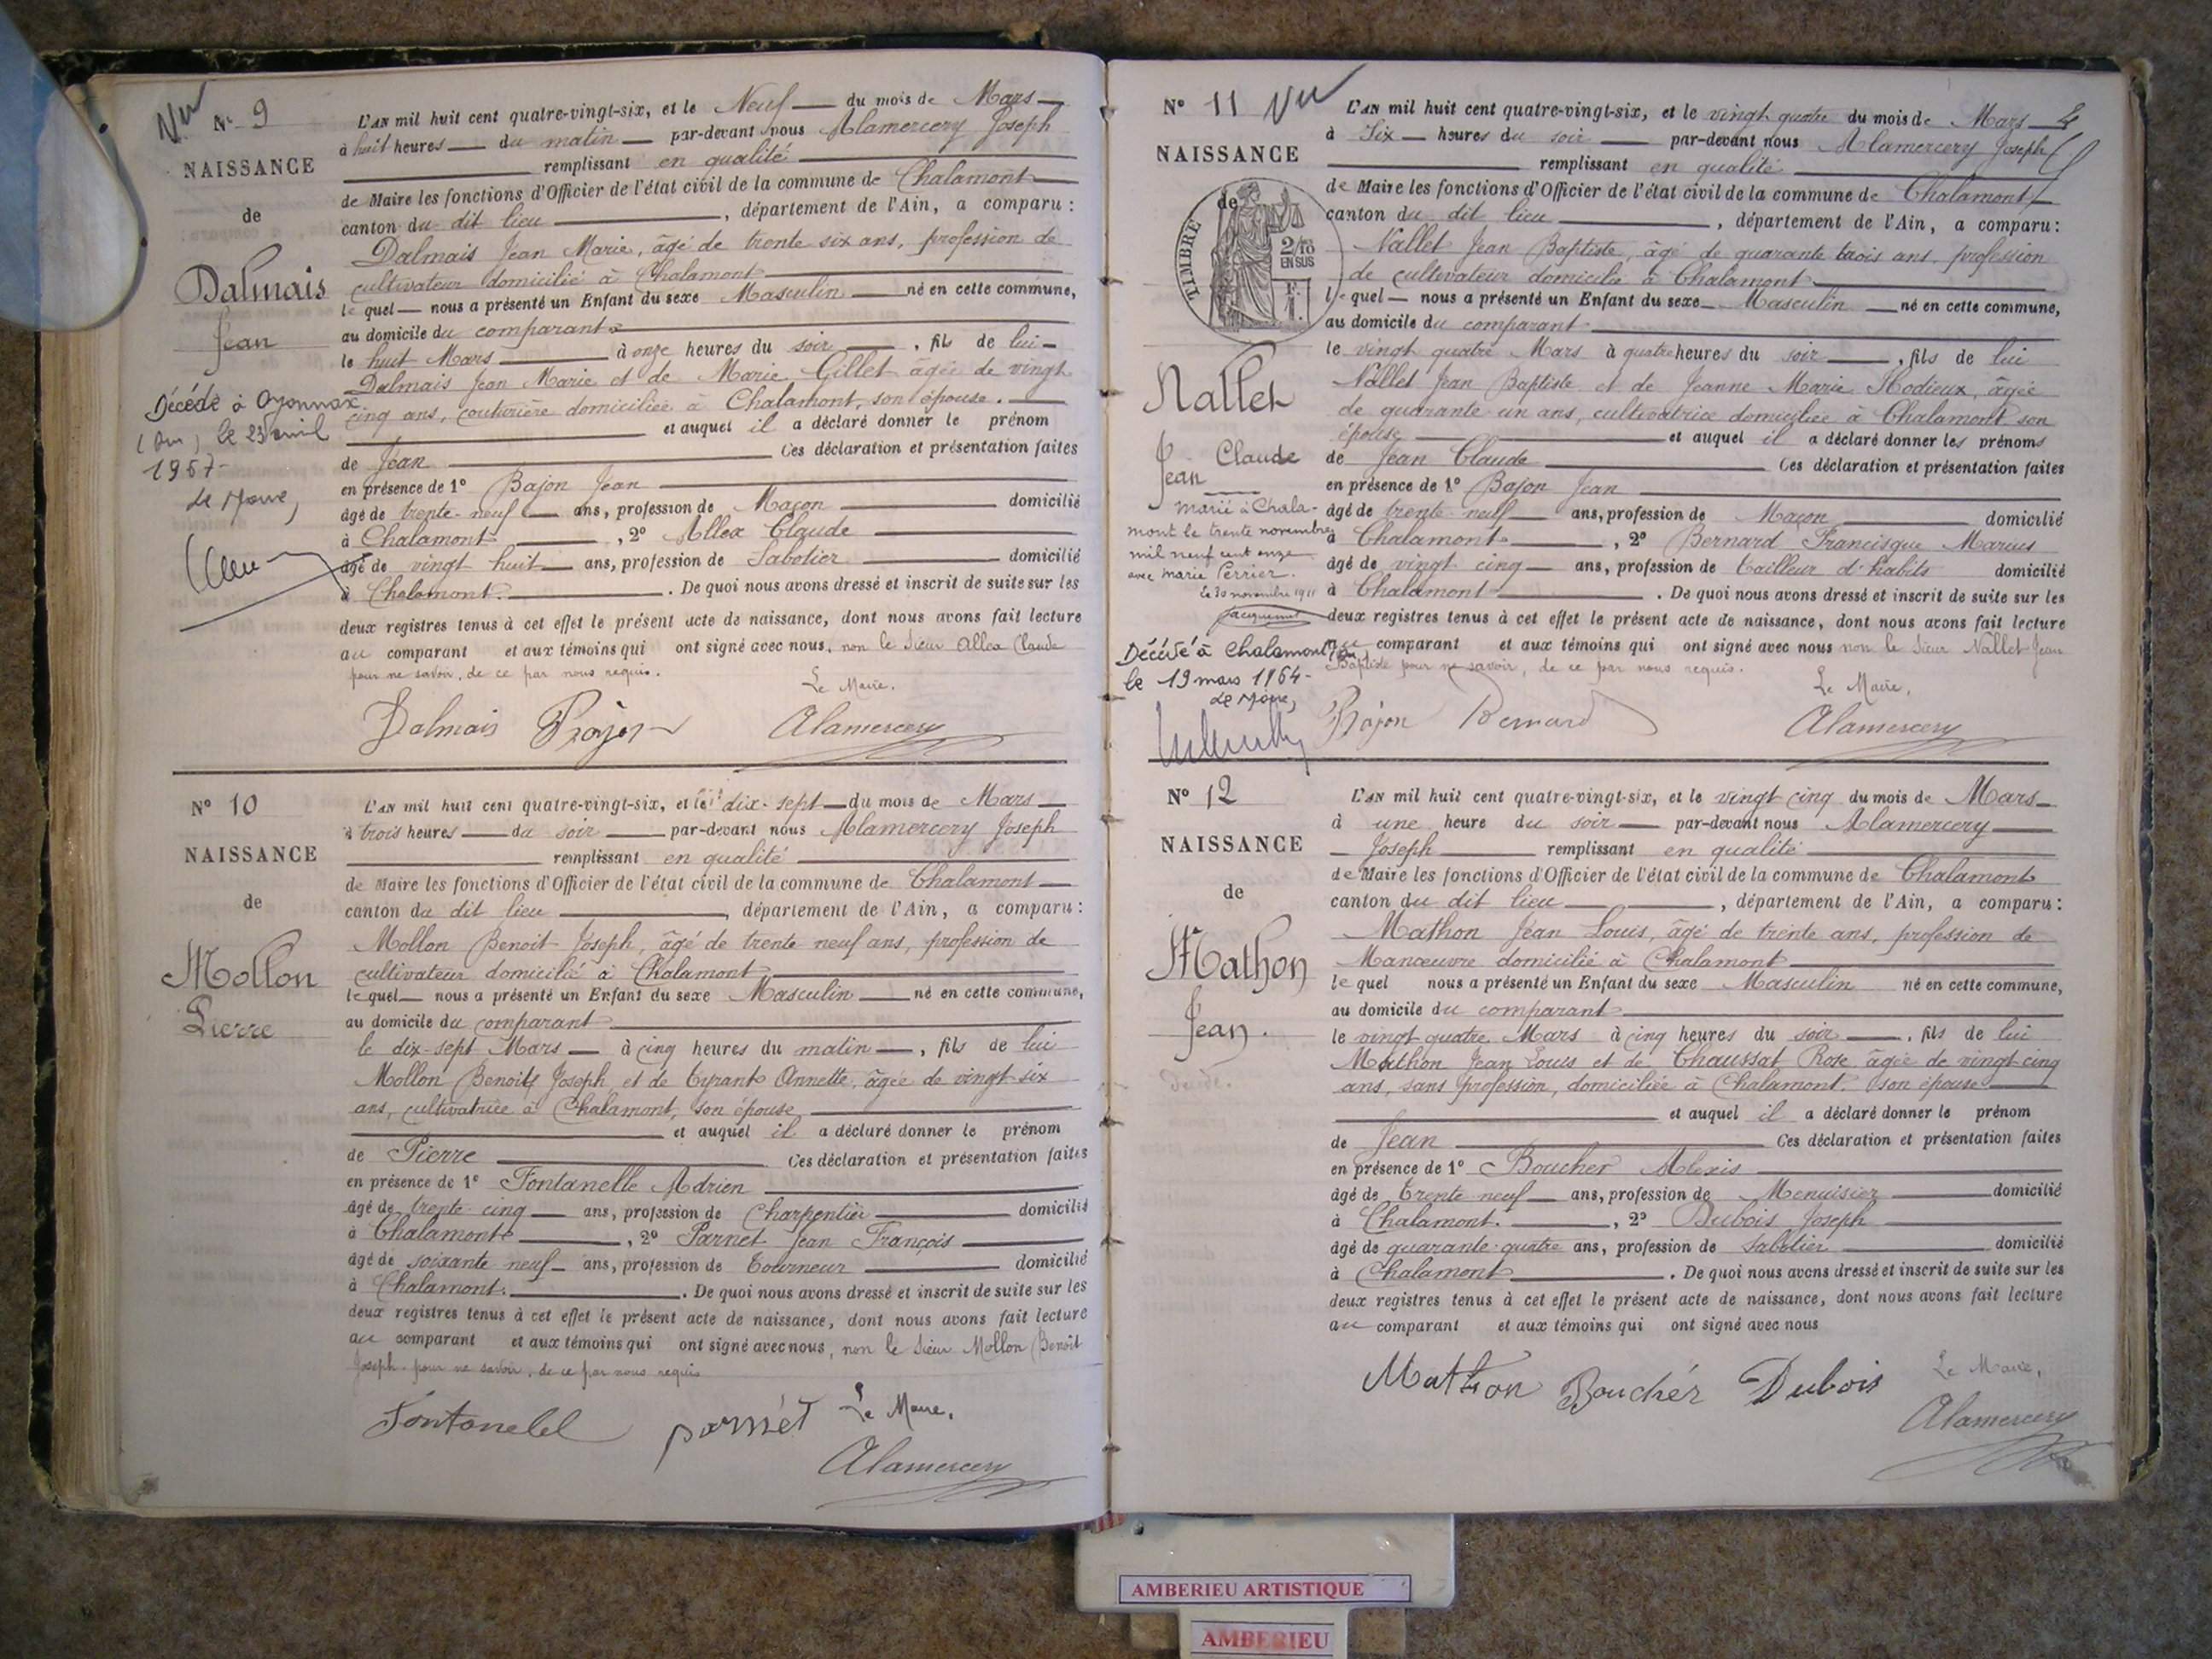 Vu
N° 9
NAISSANCE
de
Dalmais
Jean
Décédé à Oyonnax
(Ain) le 23 avril
1967-
Le Maire,
L'AN mil huit cent quatre-vingt-six, et le Neuf du mois de Mars
à huit heures du matin par-devant nous Alamercery Joseph
remplissant en qualité
de Maire les fonctions d'Officier de l'état civil de la commune de Chalamont
canton du dit lieu, département de l'Ain, a comparu :
Dalmais Jean Marie, âgé de trente six ans, profession de
cultivateur domicilié à Chalamont
lequel nous a présenté un Enfant du sexe Masculin né en cette commune,
au domicile du comparant
le huit Mars à onze heures du soir, fils de lui
Dalmais Jean Marie et de Marie Gillet âgée de vingt
cinq ans, couturière domiciliée à Chalamont, son épouse.
et auquel il a déclaré donner le prénom
de Jean Ces déclaration et présentation faites
en présence de 1° Bajon Jean
âgé de trente-neuf ans, profession de Maçon domicilié
à Chalamont, 2° Allex Claude
âgé de vingt huit ans, profession de Sabotier domicilié
à Chalamont. De quoi nous avons dressé et inscrit de suite sur les
deux registres tenus à cet effet le présent acte de naissance, dont nous avons fait lecture
au comparant et aux témoins qui ont signé avec nous, non le Sieur Allex Claude
pour ne savoir, de ce par nous requis.
Le Maire.
Dalmais Bajon Alamercery
N° 10
NAISSANCE
de
Mollon
Pierre
L'AN mil huit cent quatre-vingt-six, et le dix-sept du mois de Mars
à trois heures du soir par-devant nous Alamercery Joseph
remplissant en qualité
de Maire les fonctions d'Officier de l'état civil de la commune de Chalamont
canton du dit lieu, département de l'Ain, a comparu :
Mollon Benoit Joseph, âgé de trente neuf ans, profession de
cultivateur domicilié à Chalamont
lequel nous a présenté un Enfant du sexe Masculin né en cette commune,
au domicile du comparant
le dix-sept Mars à cinq heures du matin, fils de lui
Mollon Benoit Joseph et de Tyrant Annette, âgée de vingt six
ans, cultivatrice à Chalamont, son épouse
et auquel il a déclaré donner le prénom
de Pierre Ces déclaration et présentation faites
en présence de 1° Fontanelle Adrien
âgé de trente cinq ans, profession de Charpentier domicilié
à Chalamont, 2° Parnet Jean François
âgé de soixante neuf ans, profession de Tourneur domicilié
à Chalamont. De quoi nous avons dressé et inscrit de suite sur les
deux registres tenus à cet effet le présent acte de naissance, dont nous avons fait lecture
au comparant et aux témoins qui ont signé avec nous, non le Sieur Mollon Benoit
Joseph pour ne savoir, de ce par nous requis
Le Maire.
Fontanelel parnét Alamercery
N° 11 Vu
NAISSANCE
de
TIMBRE
2/10
EN SUS
Nallet
Jean Claude
Marié à Chala-
mont le trente novembre
mil neuf cent onze
avec Marie Perrier.
Le 30 novembre 1911
Jacquemet
Décédé à Chalamont (Ain)
le 19 mars 1964-
Le Maire,
L'AN mil huit cent quatre-vingt-six, et le vingt quatre du mois de Mars
à Six heures du soir par-devant nous Alamercery Joseph
remplissant en qualité
de Maire les fonctions d'Officier de l'état civil de la commune de Chalamont
canton du dit lieu, département de l'Ain, a comparu :
Nallet Jean Baptiste, âgé de quarante trois ans, profession
de cultivateur domicilié à Chalamont
lequel nous a présenté un Enfant du sexe Masculin né en cette commune,
au domicile du comparant
le vingt quatre Mars à quatre heures du soir, fils de lui
Nallet Jean Baptiste et de Jeanne Marie Hodieux, âgée
de quarante un ans, cultivatrice domiciliée à Chalamont, son
épouse et auquel il a déclaré donner les prénoms
de Jean Claude Ces déclaration et présentation faites
en présence de 1° Bajon Jean
âgé de trente neuf ans, profession de Maçon domicilié
à Chalamont, 2° Bernard Francisque Marius
âgé de vingt cinq ans, profession de tailleur d'habits domicilié
à Chalamont. De quoi nous avons dressé et inscrit de suite sur les
deux registres tenus à cet effet le présent acte de naissance, dont nous avons fait lecture
au comparant et aux témoins qui ont signé avec nous non le Sieur Nallet Jean
Baptiste pour ne savoir, de ce par nous requis.
Le Maire,
Bajon Bernard Alamercery
N° 12
NAISSANCE
de
Mathon
Jean.
L'AN mil huit cent quatre-vingt-six, et le vingt cinq du mois de Mars
à une heure du soir par-devant nous Alamercery
Joseph remplissant en qualité
de Maire les fonctions d'Officier de l'état civil de la commune de Chalamont
canton du dit lieu, département de l'Ain, a comparu :
Mathon Jean Louis, âgé de trente ans, profession de
Manoeuvre domicilié à Chalamont
lequel nous a présenté un Enfant du sexe Masculin né en cette commune,
au domicile du comparant
le vingt quatre Mars à cinq heures du soir, fils de lui
Mathon Jean Louis et de Chaussat Rose âgée de vingt cinq
ans, sans profession, domiciliée à Chalamont, son épouse
et auquel il a déclaré donner le prénom
de Jean Ces déclaration et présentation faites
en présence de 1° Boucher Alexis
âgé de trente neuf ans, profession de Menuisier domicilié
à Chalamont., 2° Dubois Joseph
âgé de quarante quatre ans, profession de Sabotier domicilié
à Chalamont. De quoi nous avons dressé et inscrit de suite sur les
deux registres tenus à cet effet le présent acte de naissance, dont nous avons fait lecture
au comparant et aux témoins qui ont signé avec nous
Le Maire,
Mathon Bouchér Dubois Alamercery
AMBERIEU ARTISTIQUE
AMBERIEU